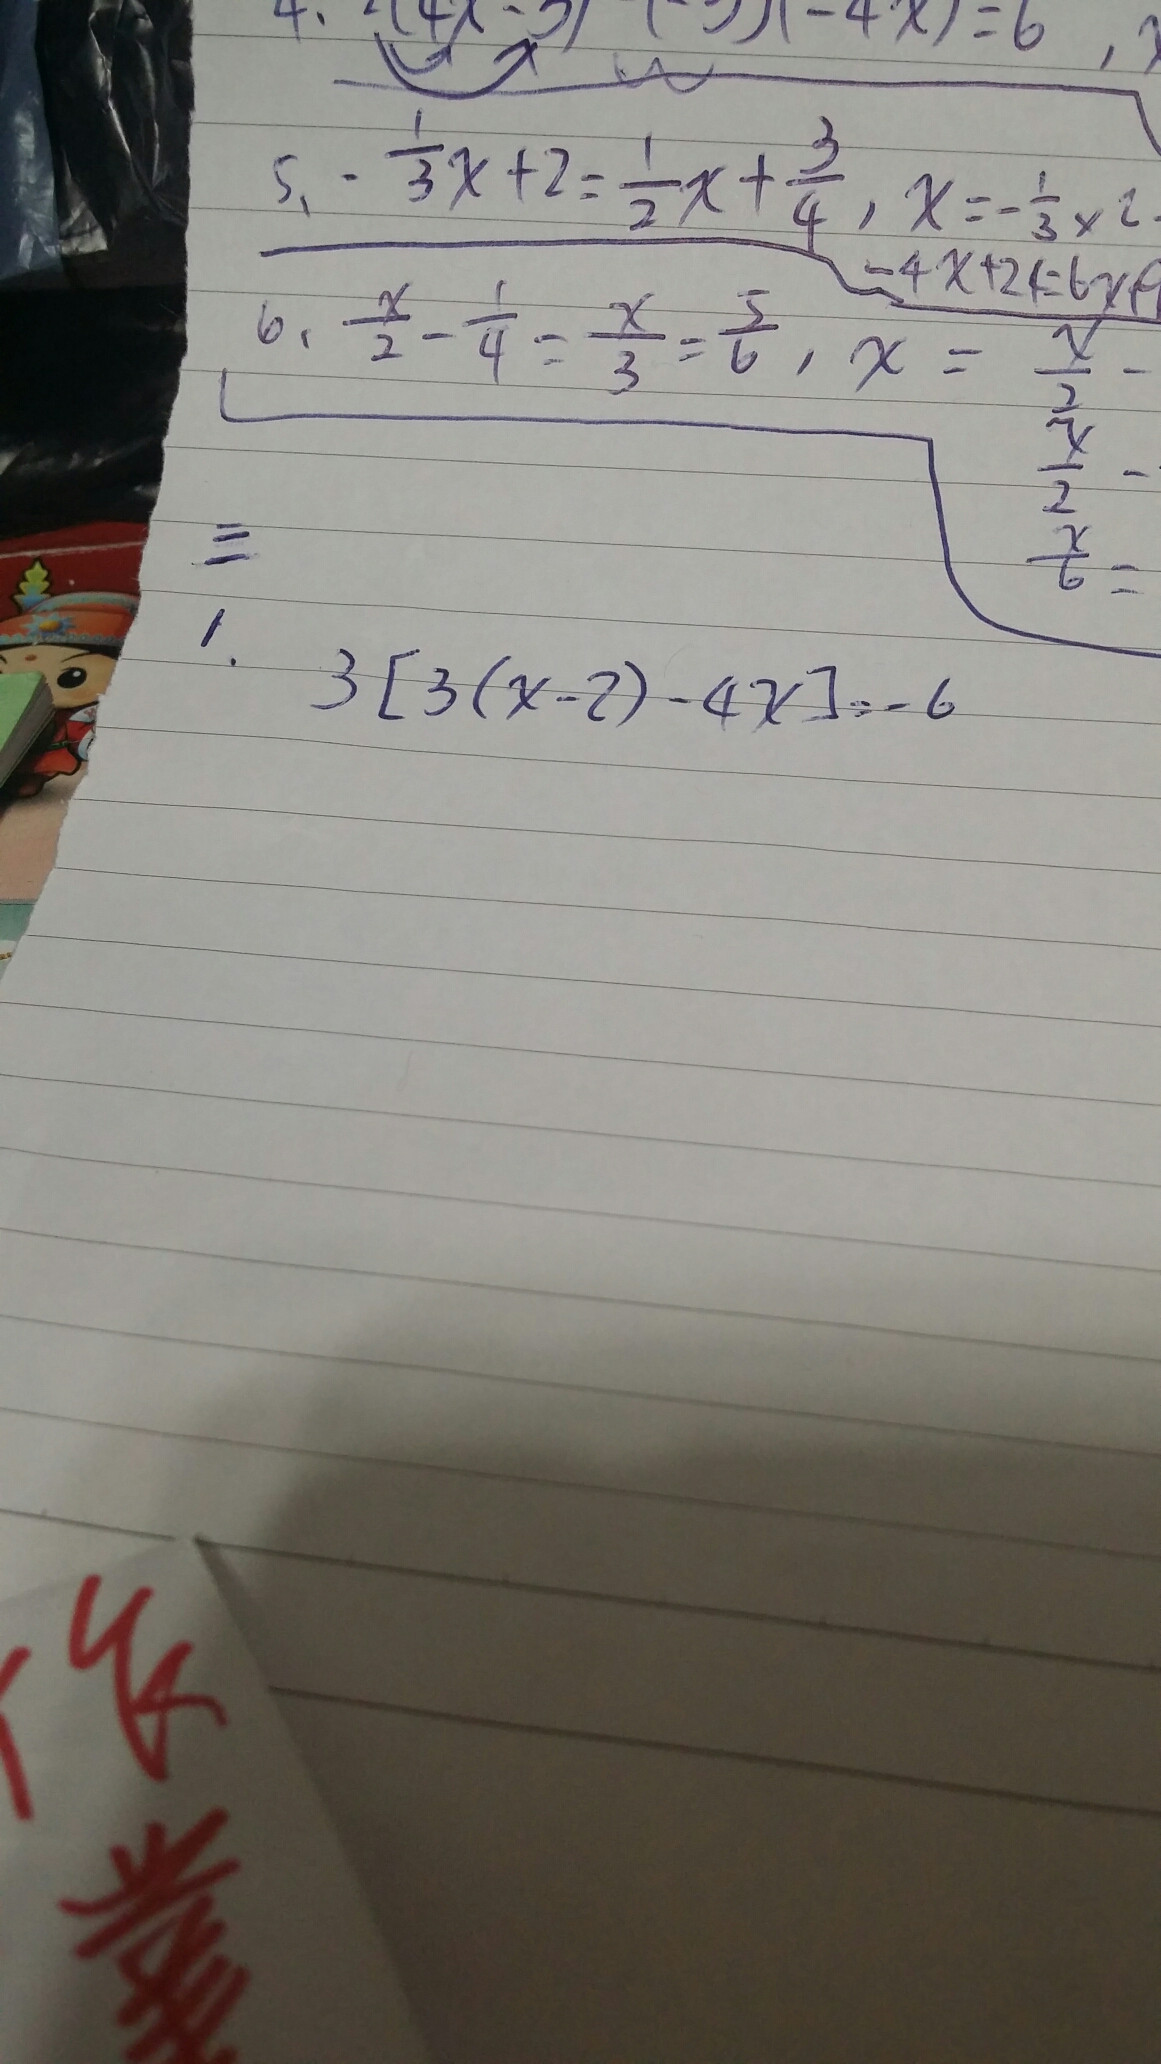 4. 2(4x-3) -(-3)(-4x)=6 , x
5. -1/3x+2=1/2x+3/4, x=-1/3×2-
-4x+24=6x+9
6. x/2-1/4=x/3=5/6, x = x/2 -
x/2 -
x/6 =
三
1.
3[3(x-2)-4x]=-6